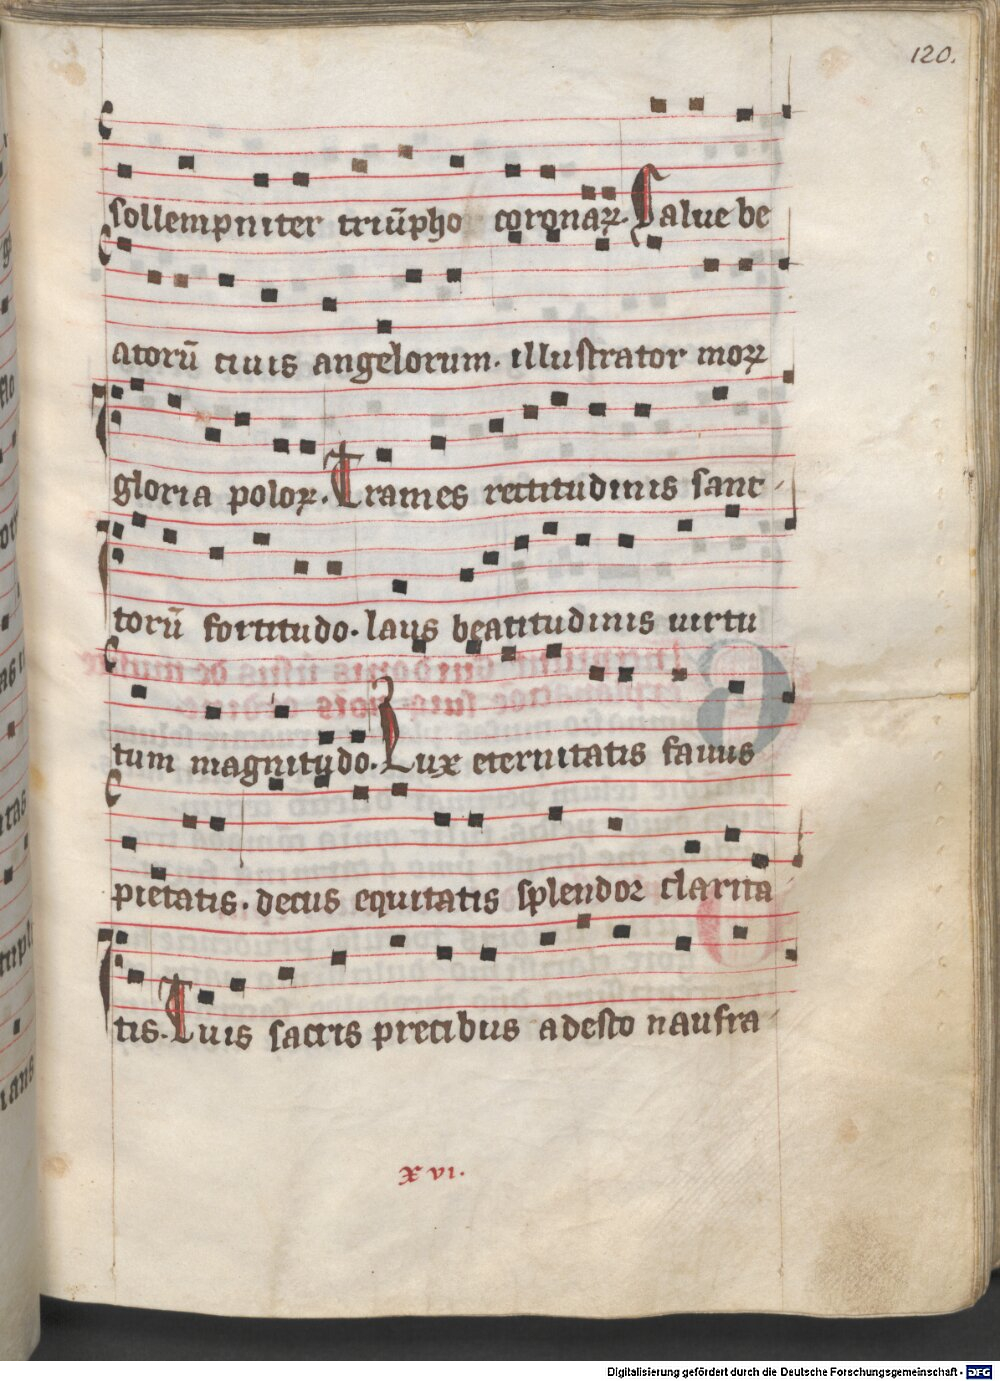 120.
sollempniter triūpho coronaꝝ. Salue be
atorū ciuis angelorum. illustrator moꝝ
gloria poloꝝ. Trames rectitudinis sanc
torū fortitudo. laus beatitudinis uirtu
tum magnitudo. Lux eternitatis fauus
pietatis. decus equitatis splendor clarita
tis. Tuis sacris precibus adesto naufra
xvi.
Digitalisierung gefördert durch die Deutsche Forschungsgemeinschaft - DFG